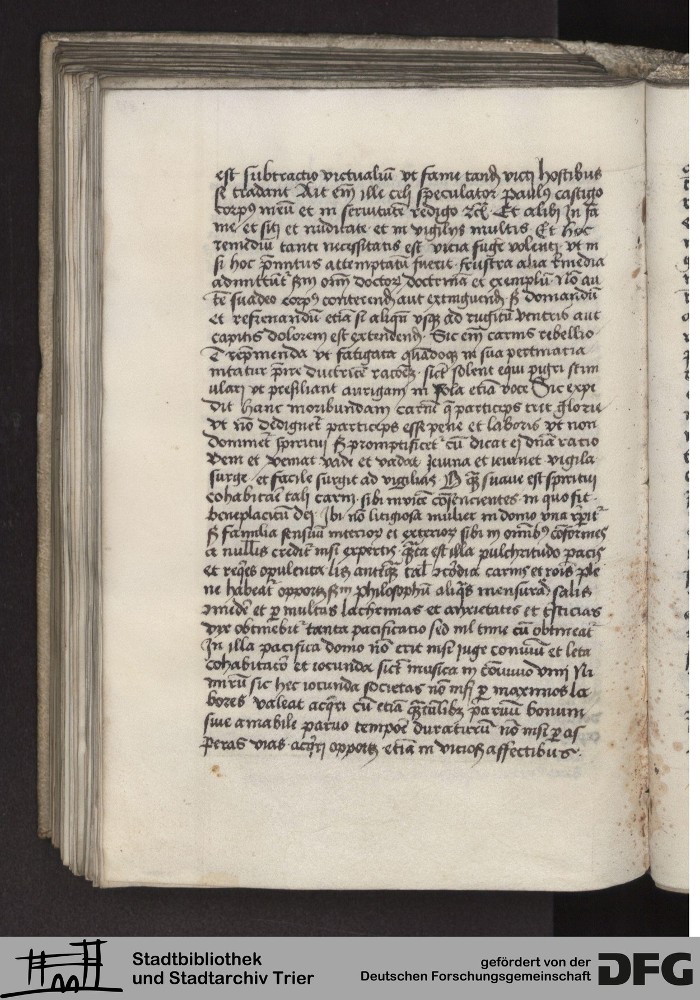 est subtractio victualiū vt fame tandē victi hostibus
se tradant Ait em̄ ille celi speculator Paulꝯ castigo
corpꝯ meū et in seruitutē redigo ⁊cꝭ Et alibi In fa
me et siti et nuditate et in vigilijs multis Et hoc
remediū tanti necessitatis est vicia fuge volenti vt ni
si hoc primitus attemptatum fuerit frustra alia remedia
admittūt scdm om̄ doctoꝝ doctrinā et exemplū Nō au
tē suadeo corpꝯ conterendū aut extinguendū sꝫ domandū
et refrenandū etiā si aliqn̄ vsqꝫ ad rugitū ventris aut
capitis dolorem est extendendū Sic em̄ carnis rebellio
ē reprimenda vt fatigata qn̄doqꝫ in sua pertinatia
mitatur ductricē racōeꝫ sicut solent equi pigri stim
ulati vt presiliant aurigam in sola etiā voce Sic expe
dit hanc moribundam carnē q̄ particeps erit glorie
vt nō dedignet' particeps esse pene et laboris vt non
dominet' spiritui sꝫ promptificet' cū dicat ei dn̄a racio
veni et veniat vade et vadat ieiuna et ieiunet vigila
surge et facile surgit ad vigilias O qꝫ suaue est spiritui
cohabitare tali carni sibi inuicē cōsencientes in quo fit
beneplacitū dei Ibi nō litigiosa mulier in domo vna
sꝫ familia sensuū interioꝝ et exterioꝝ sibi in omībꝯ cōformes
nullis credit' nisi expertis quāta est illa pulchritudo pacis
et reqͥes opulenta ꝯcordia carnis et rōis ple
ne habeat' oportꝫ scdm philosophū aliqͥs mensurā salis
ꝯmedere et per multas lachrimas et anxietates et tristicias
vix obtinebit' tanta pacificatio sed nil tunc cū obtineat'
In illa pacifica domo nō erit nisi iuge conuiuiū et leta
cohabitacio et iocunda sicut musica in cōuiuio vini Ni
mirū sic hec iocunda societas nō nisi per maximos la
bores valeat acqͥri cū etiā quātulūlibꝫ paruū bonum
siue amabile paruo tempore duraturū nō nisi per as
peras vias acqͥri oportꝫ etiā in viciosis affectibus
Stadtbibliothek
und Stadtarchiv Trier
gefördert von der
Deutschen Forschungsgemeinschaft
DFG